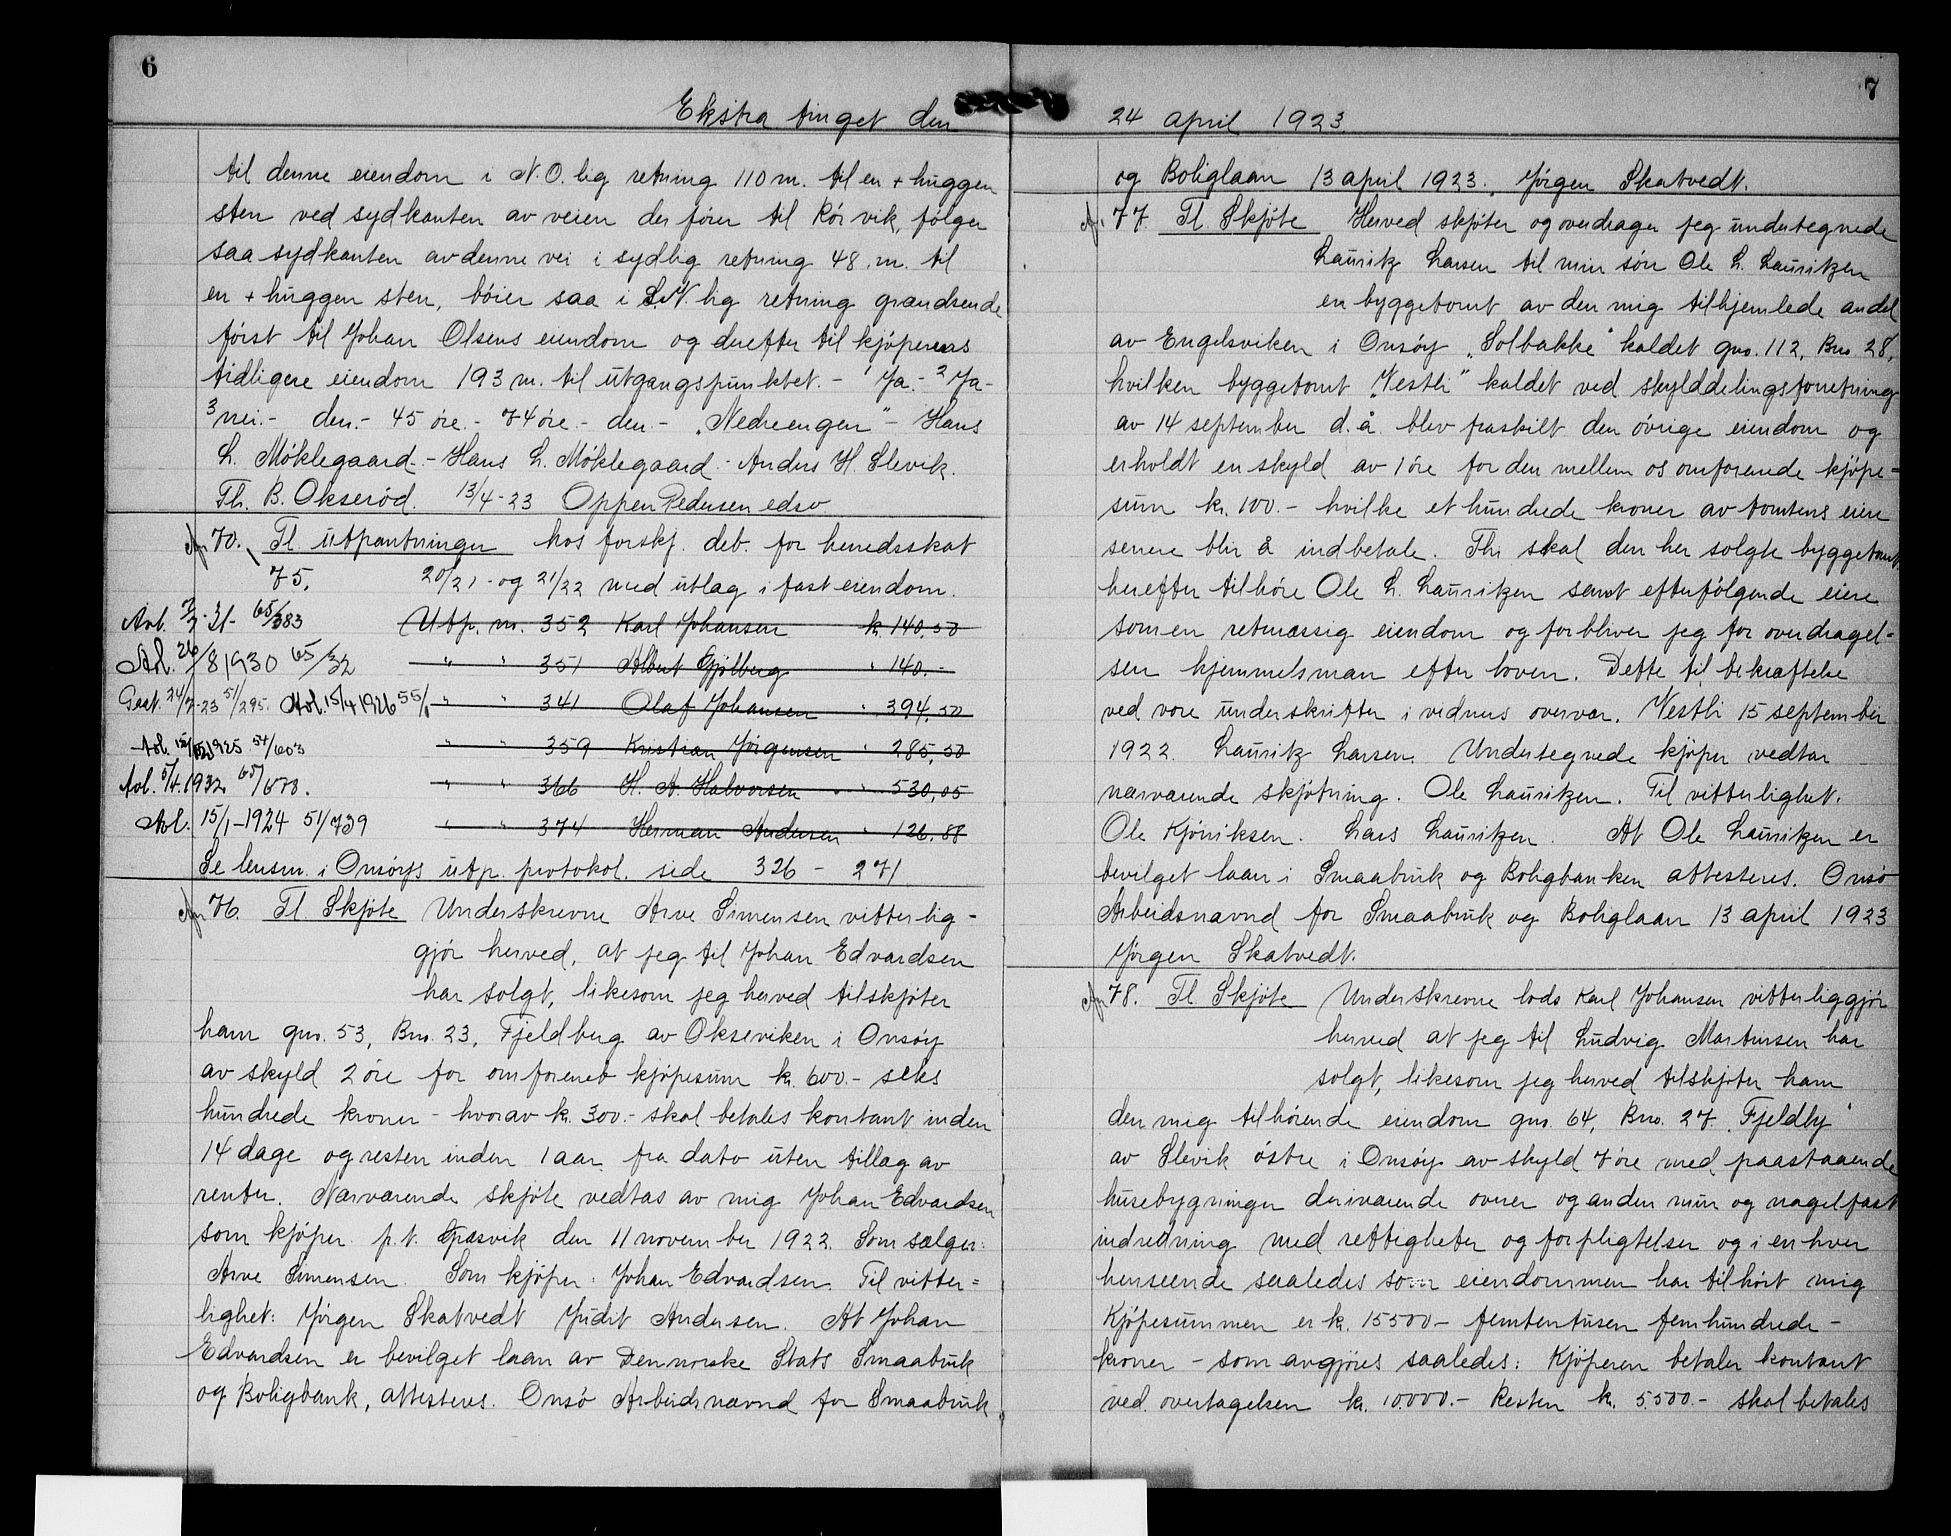 6
Ekstra tinget den
til denne eiendom i N.O.lig retning 110 m. til en + huggen
sten ved sydkanten av veien der förer til Rörvik, følger
saa sydkanten av denne vei i sydlig retning 48 m. til
en + huggen sten, böier saa i S.V. lig retning grændsende
först til Johan Olsens eiendom og derefter til kjöperens
tidligere eiendom 193 m. til utgangspunktet. - 1 Ja. - 2 Ja -
3 nei. - den. - 45 öre. - 74 öre. - den - "Nedreengen" - Hans
L. Möklegaard. - Hans L. Möklegaard. - Anders H. Slevik.
Th. B. Okseröd. 13/4-23 Oppen Pedersen edsv
Nr 70. Tl. utpantninger hos forskj. deb. for herredsskat
75. 20/21 - og 21/22 med utlag i fast eiendom.
Avl. 7/7-31- 65/383 Utp. nr. 352 Karl Johansen kr. 140,50
Avl. 26/8 1930 65/32 " " 351 Albert Gjölberg " 140.-
24/7-23 51/295. Avl. 15/4 1926 55/1 " " 341 Olaf Johansen " 394,50
Avl. 1925 54/603 " " 359 Kristian Jörgensen " 285,50
Avl. 5/4.1932 65/673. " " 366 H. A. Halvorsen " 530,05
Avl. 15/1-1924 51/739 " " 374 Herman Andersen " 126.88
Se lensm. i Onsöys utp. protokol. side 326 - 271
Nr 76. Tl Skjöte Underskrevne Arve Simensen vitterlig-
gjör herved, at jeg til Johan Edvardsen
har solgt, likesom jeg herved tilskjöter
ham gno. 53, Bno. 23, Fjeldberg av Okseviken i Onsöy
av skyld 2 öre for omforenet kjöpesum kr. 600.- seks
hundrede kroner - hvorav kr. 300.- skal betales kontant inden
14 dage og resten inden 1 aar fra dato uten tillæg av
renter. Nærværende skjöte vedtas av mig Johan Edvardsen
som kjöper. p.t. Græsvik den 11 november 1922. Som sælger:
Arve Simensen. Som kjöper: Johan Edvardsen. Til vitter=
lighet: Jörgen Skatvedt Judit Andersen. At Johan
Edvardsen er bevilget laan av Den norske Stats Smaabruk
og Boligbank, attesteres. Onsö Arbeidsnævnd for Smaabruk
7
24 april 1923.
og Boliglaan 13 april 1923. Jörgen Skatvedt.
Nr. 77 Tl. Skjöte Herved skjöter og overdrager jeg undertegnede
Lauritz Larsen til min sön Ole L. Lauritzen
en byggetomt av den mig tilhjemlede andel
av Engelsviken i Onsöy "Solbakke" kaldet gno. 112, Bno. 28,
hvilken byggetomt "Vestli" kaldet ved skylddelingsforretning
av 14 september d.å. blev fraskilt den övrige eiendom og
erholdt en skyld av 1 öre for den mellem os omforende kjöpe-
sum kr. 100.- hvilke et hundrede kroner av tomtens eiere
senere blir å indbetale. Thi skal den her solgte byggetomt
herefter tilhöre Ole L. Lauritzen samt efterfölgende eiere
som en retmæssig eiendom og forbliver jeg for overdragel-
sen hjemmelsman efter loven. Dette til bekræftelse
ved vore underskrifter i vidners overvær. Vestli 15 september
1922. Lauritz Larsen. Undertegnede kjöper vedtar
nærværende skjötning. Ole Lauritzen. Til vitterlighet.
Ole Kjöniksen. Lars Lauritzen. At Ole Lauritzen er
bevilget laan i Smaabruk og Boligbanken attesteres. Onsö
Arbeidsnævnd for Smaabruk og Boliglaan 13 april 1923
Jörgen Skatvedt.
Nr 78. Tl Skjöte Underskrevne lods Karl Johansen vitterliggjör
herved at jeg til Ludvig Martinsen har
solgt, likesom jeg herved tilskjöter ham
den mig tilhörende eiendom gno. 64, Bno. 27 "Fjeldly"
av Slevik östre i Onsöy av skyld 7 öre med paastaaende
husebygninger deriværende ovner og anden mur og nagelfast
indredning med rettigheter og forpligtelser og i enhver
henseende saaledes som eiendommen har tilhört mig
Kjöpesummen er kr. 15500 - femtentusen femhundrede -
kroner - som avgjöres saaledes: Kjöperen betaler kontant
ved overtagelsen kr. 10.000.- Resten kr. 5.500.- skal betales